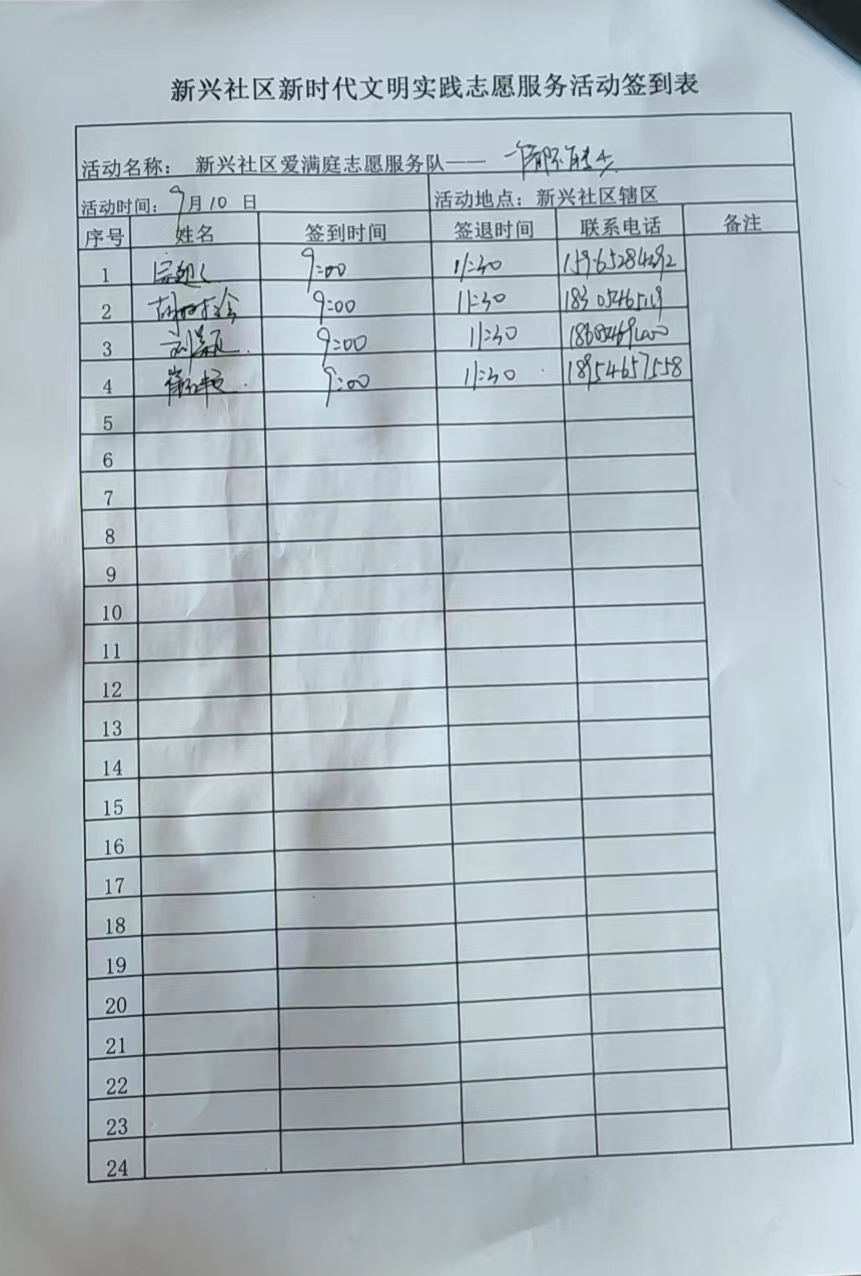 新兴社区新时代文明实践志愿服务活动签到表
活动名称： 新兴社区爱满庭志愿服务队——
活动时间：9月10 日 活动地点：新兴社区辖区
序号 姓名 签到时间 签退时间 联系电话 备注
1 9:00 11:30
2 9:00 11:30
3 9:00 11:30
4 9:00 11:30 18954657558
5
6
7
8
9
10
11
12
13
14
15
16
17
18
19
20
21
22
23
24